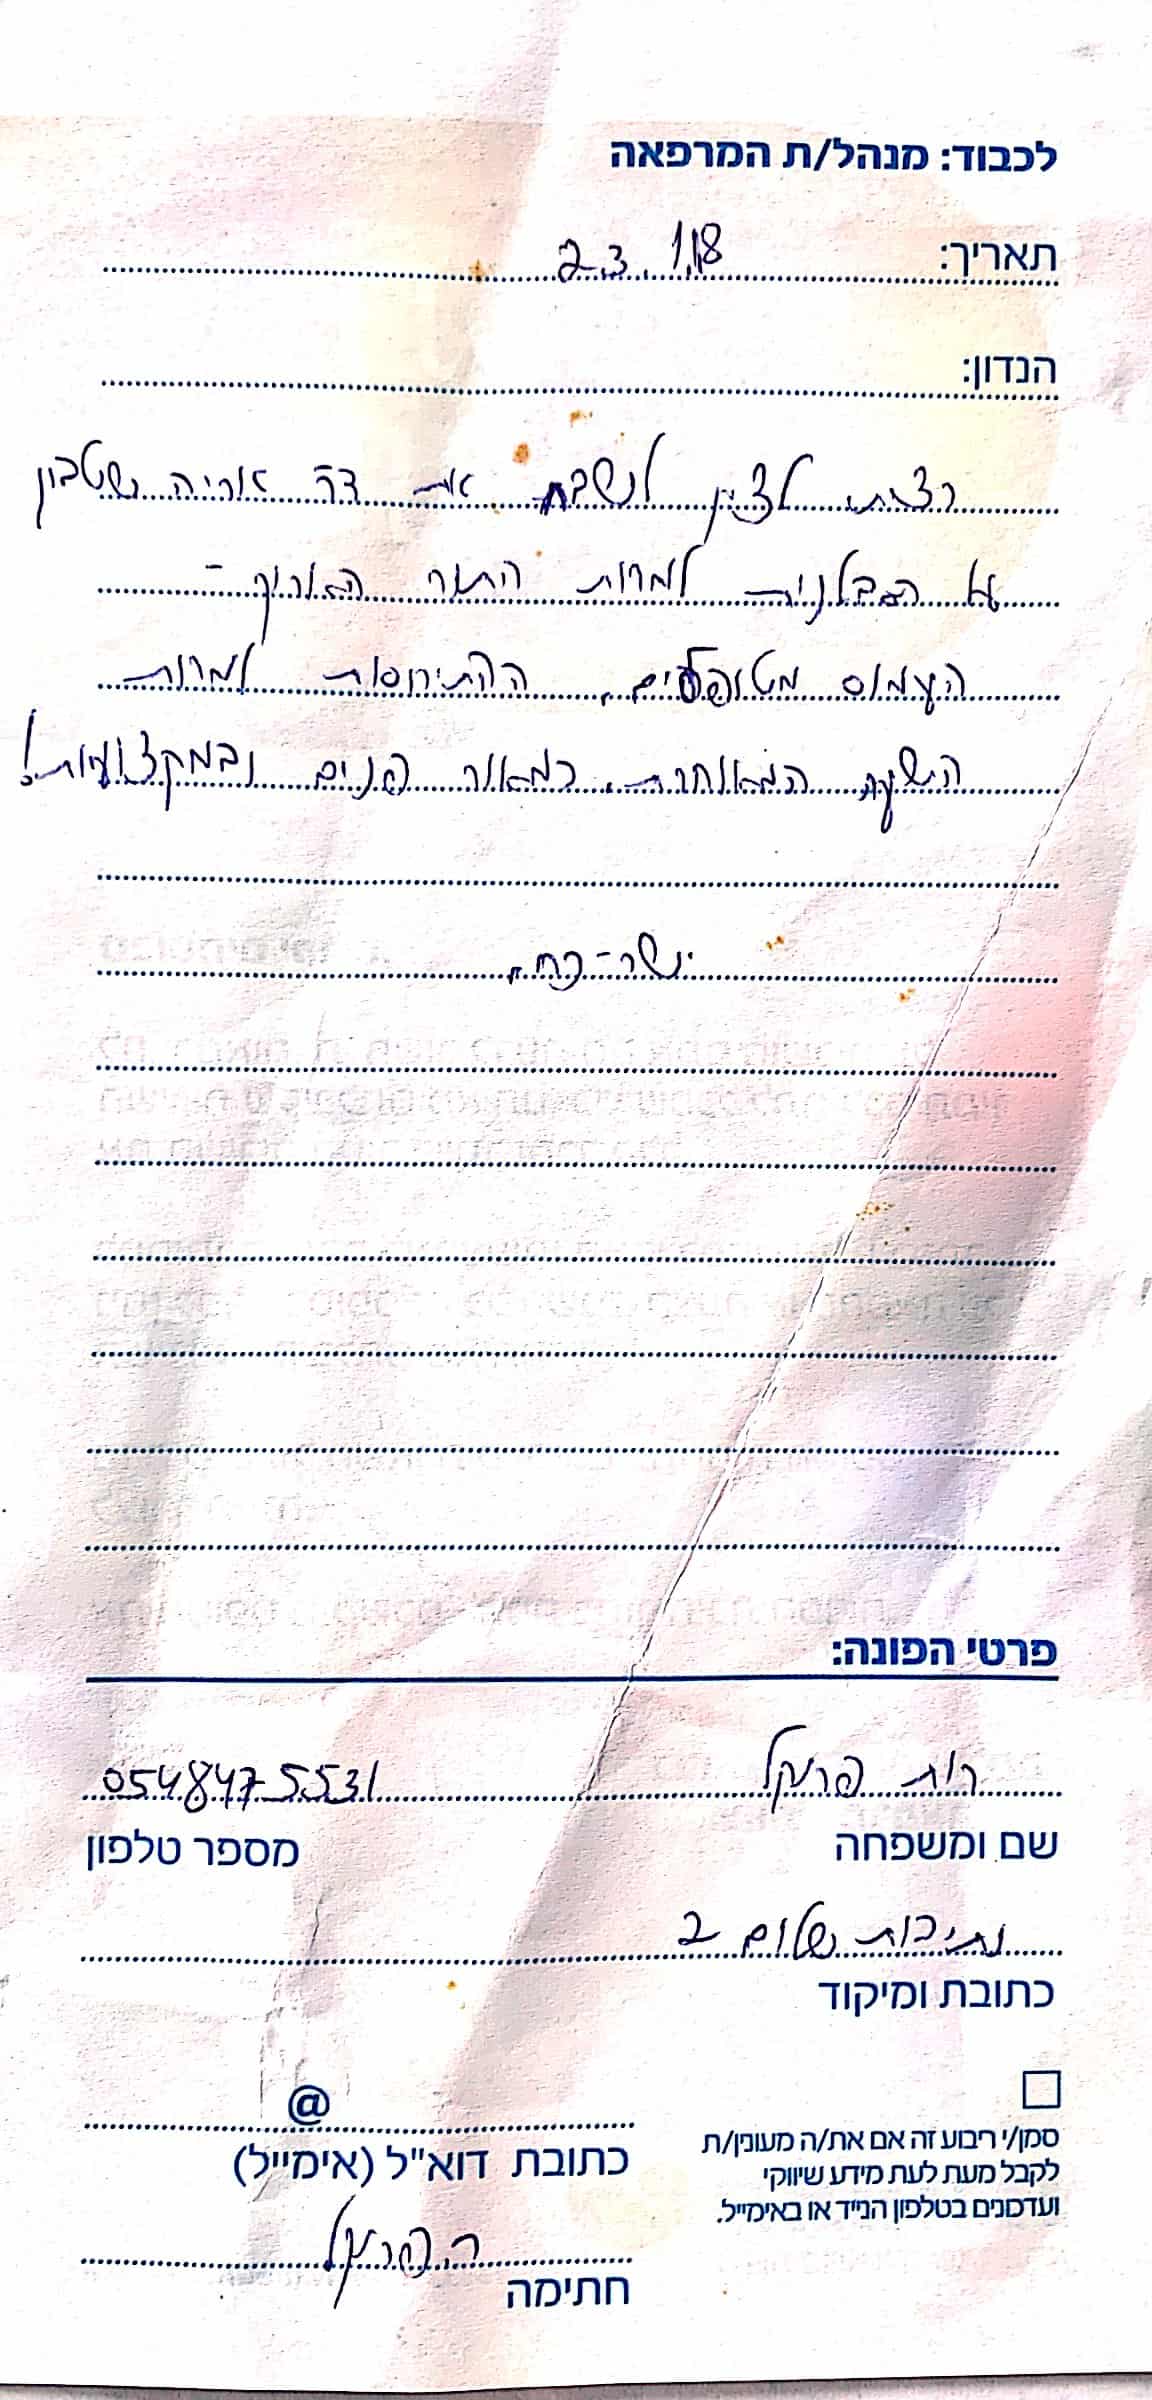 לכבוד: מנהל/ת המרפאה
תאריך: 2.3.
הנדון:
רציתי לציין לשבח את דר אריה שטבון
על הסבלנות למרות התור הארוך -
העמוס מטופלים, ההתייחסות למרות
השעה המאוחרת, במאור פנים ובמקצועיות!
יישר-כח.
פרטי הפונה:
רות פרנקל 0548475531
שם ומשפחה מספר טלפון
נתיבות שלום 2
כתובת ומיקוד
@
כתובת דוא"ל (אימייל)
סמן/י ריבוע זה אם את/ה מעונין/ת
לקבל מעת לעת מידע שיווקי
ועדכונים בטלפון הנייד או באימייל.
ר.פרנקל
חתימה